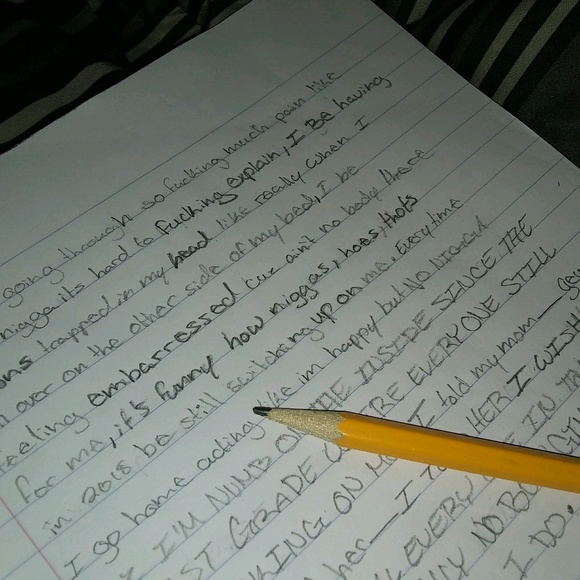 going through so fucking much pain like
nigga its hard to fucking explain, I Be having
ons trapped in my head like really when I
over on the other side of my bed, I be
feeling embarressed cuz ain't no body there
for me, it's funny how niggas, hoes, thots
in 2018 be still switching up on me, everytime
I go home acting like im happy but NO NIGGA
I'M NUMB ON THE INSIDE SINCE THE
ST GRADE WERE EVERYONE STILL
KING ON I told my mom
her I HER I WISH
EVERY IN
NO BO
I DO.